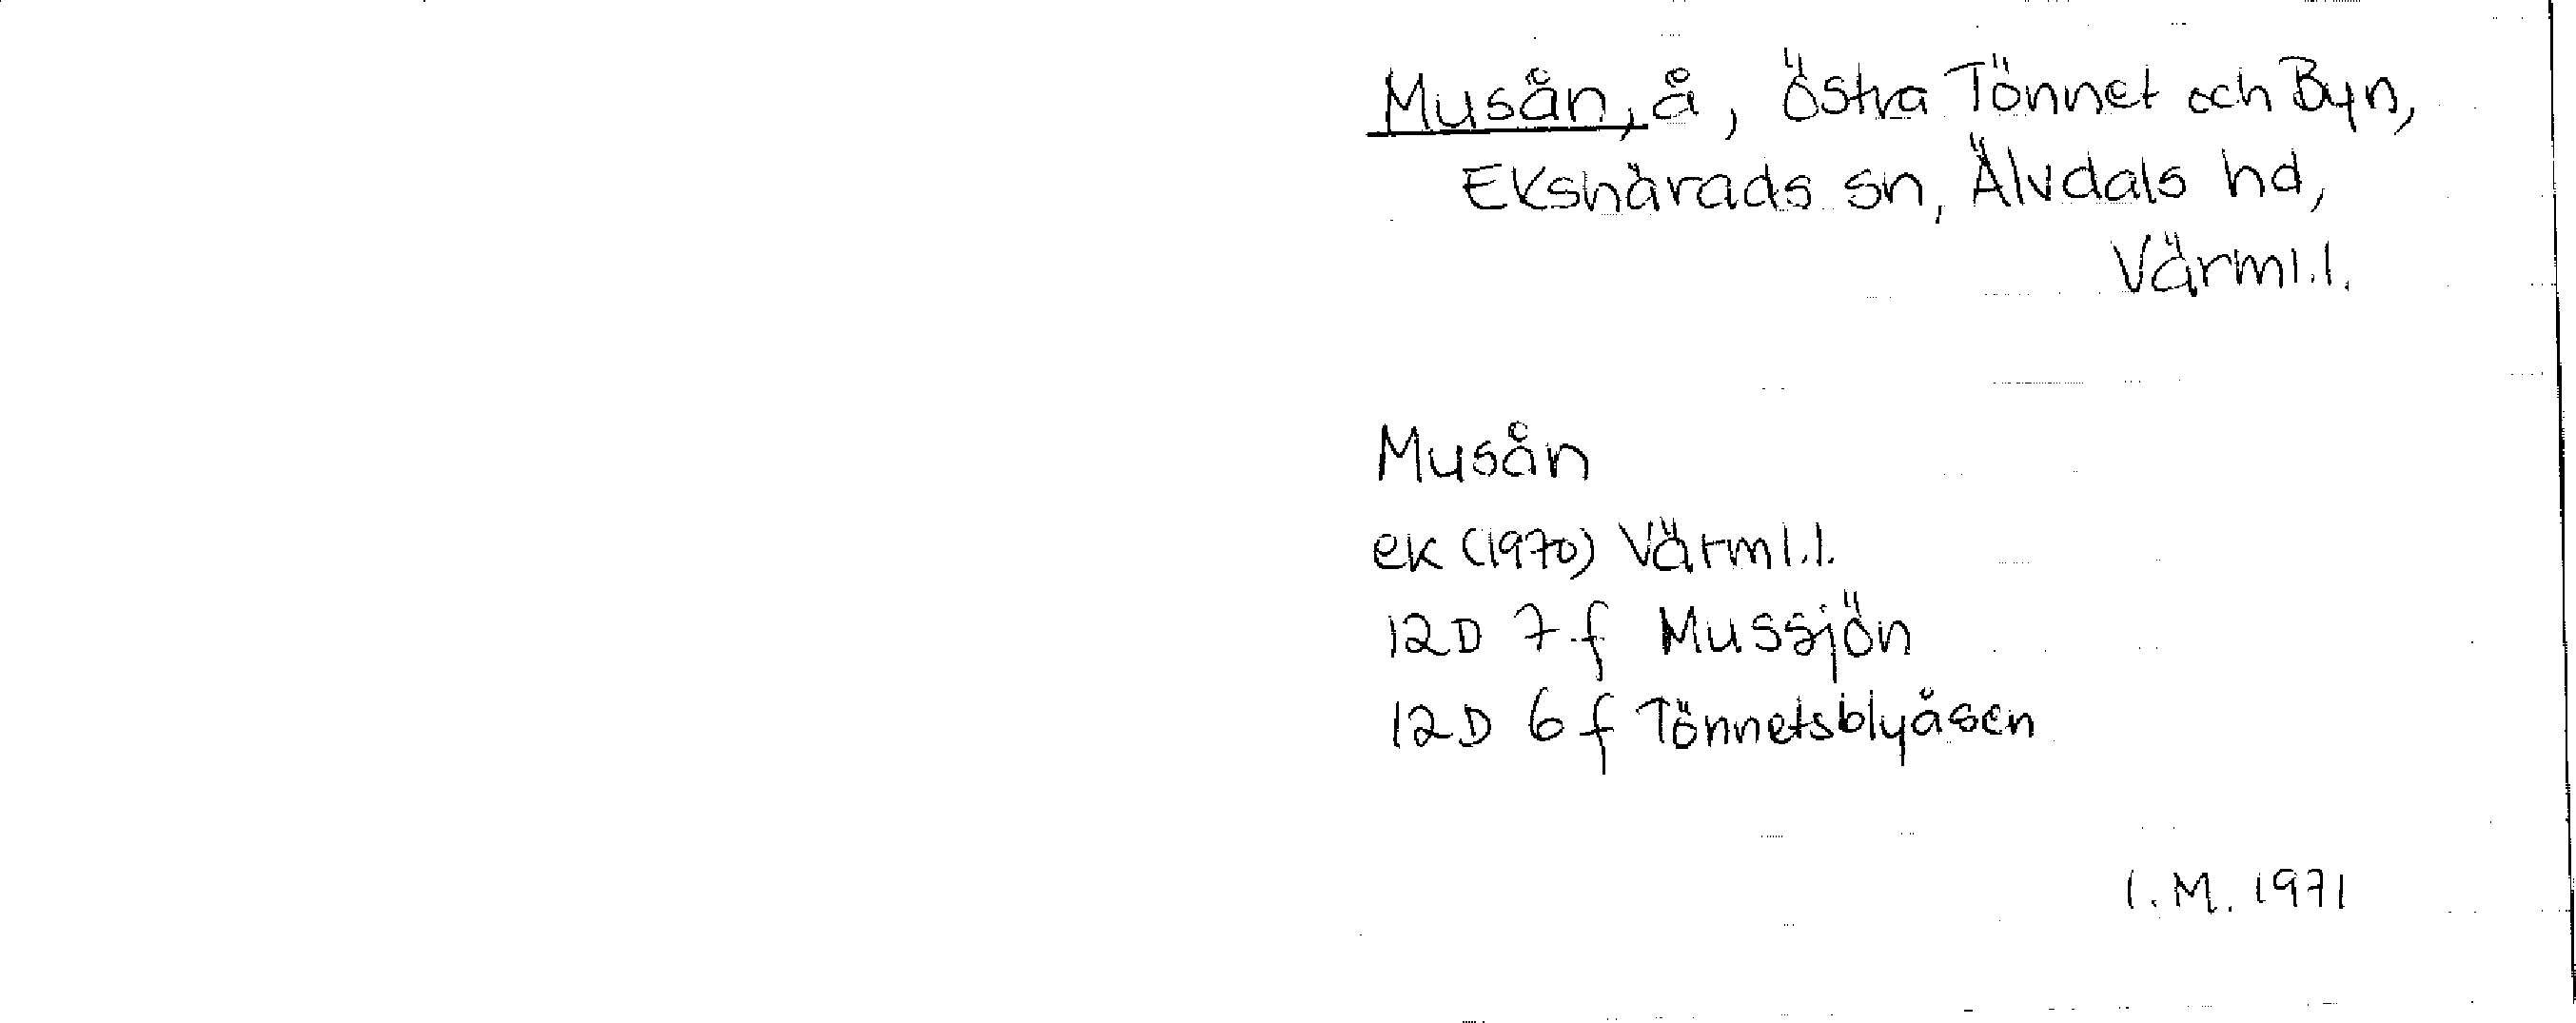 Musån, å, Östra Tönnet och Byn,
Ekshärads sn, Älvdals hd,
Värml.l.
Musån
ek (1970) Värml.l.
12D 7 f Mussjön
12D 6 f Tönnetsblyåsen
I.M. 1971